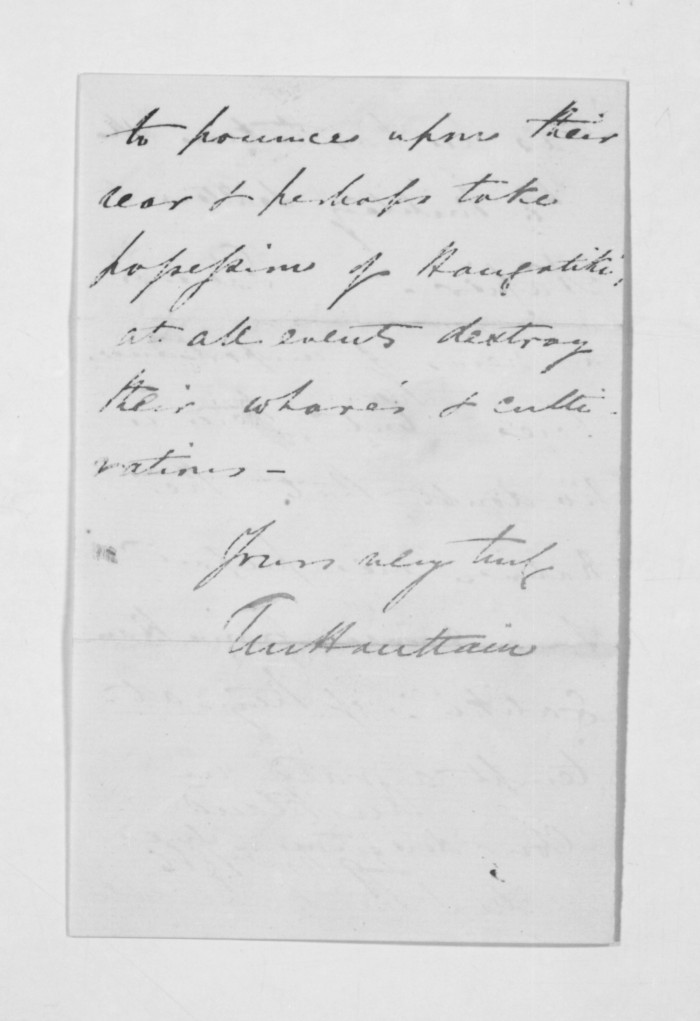 to pounce upon their
rear & perhaps take
possession of Haugatiki,
at all events destroy
their wharés & culti-
vations -
Yours very truly
TM Haultain